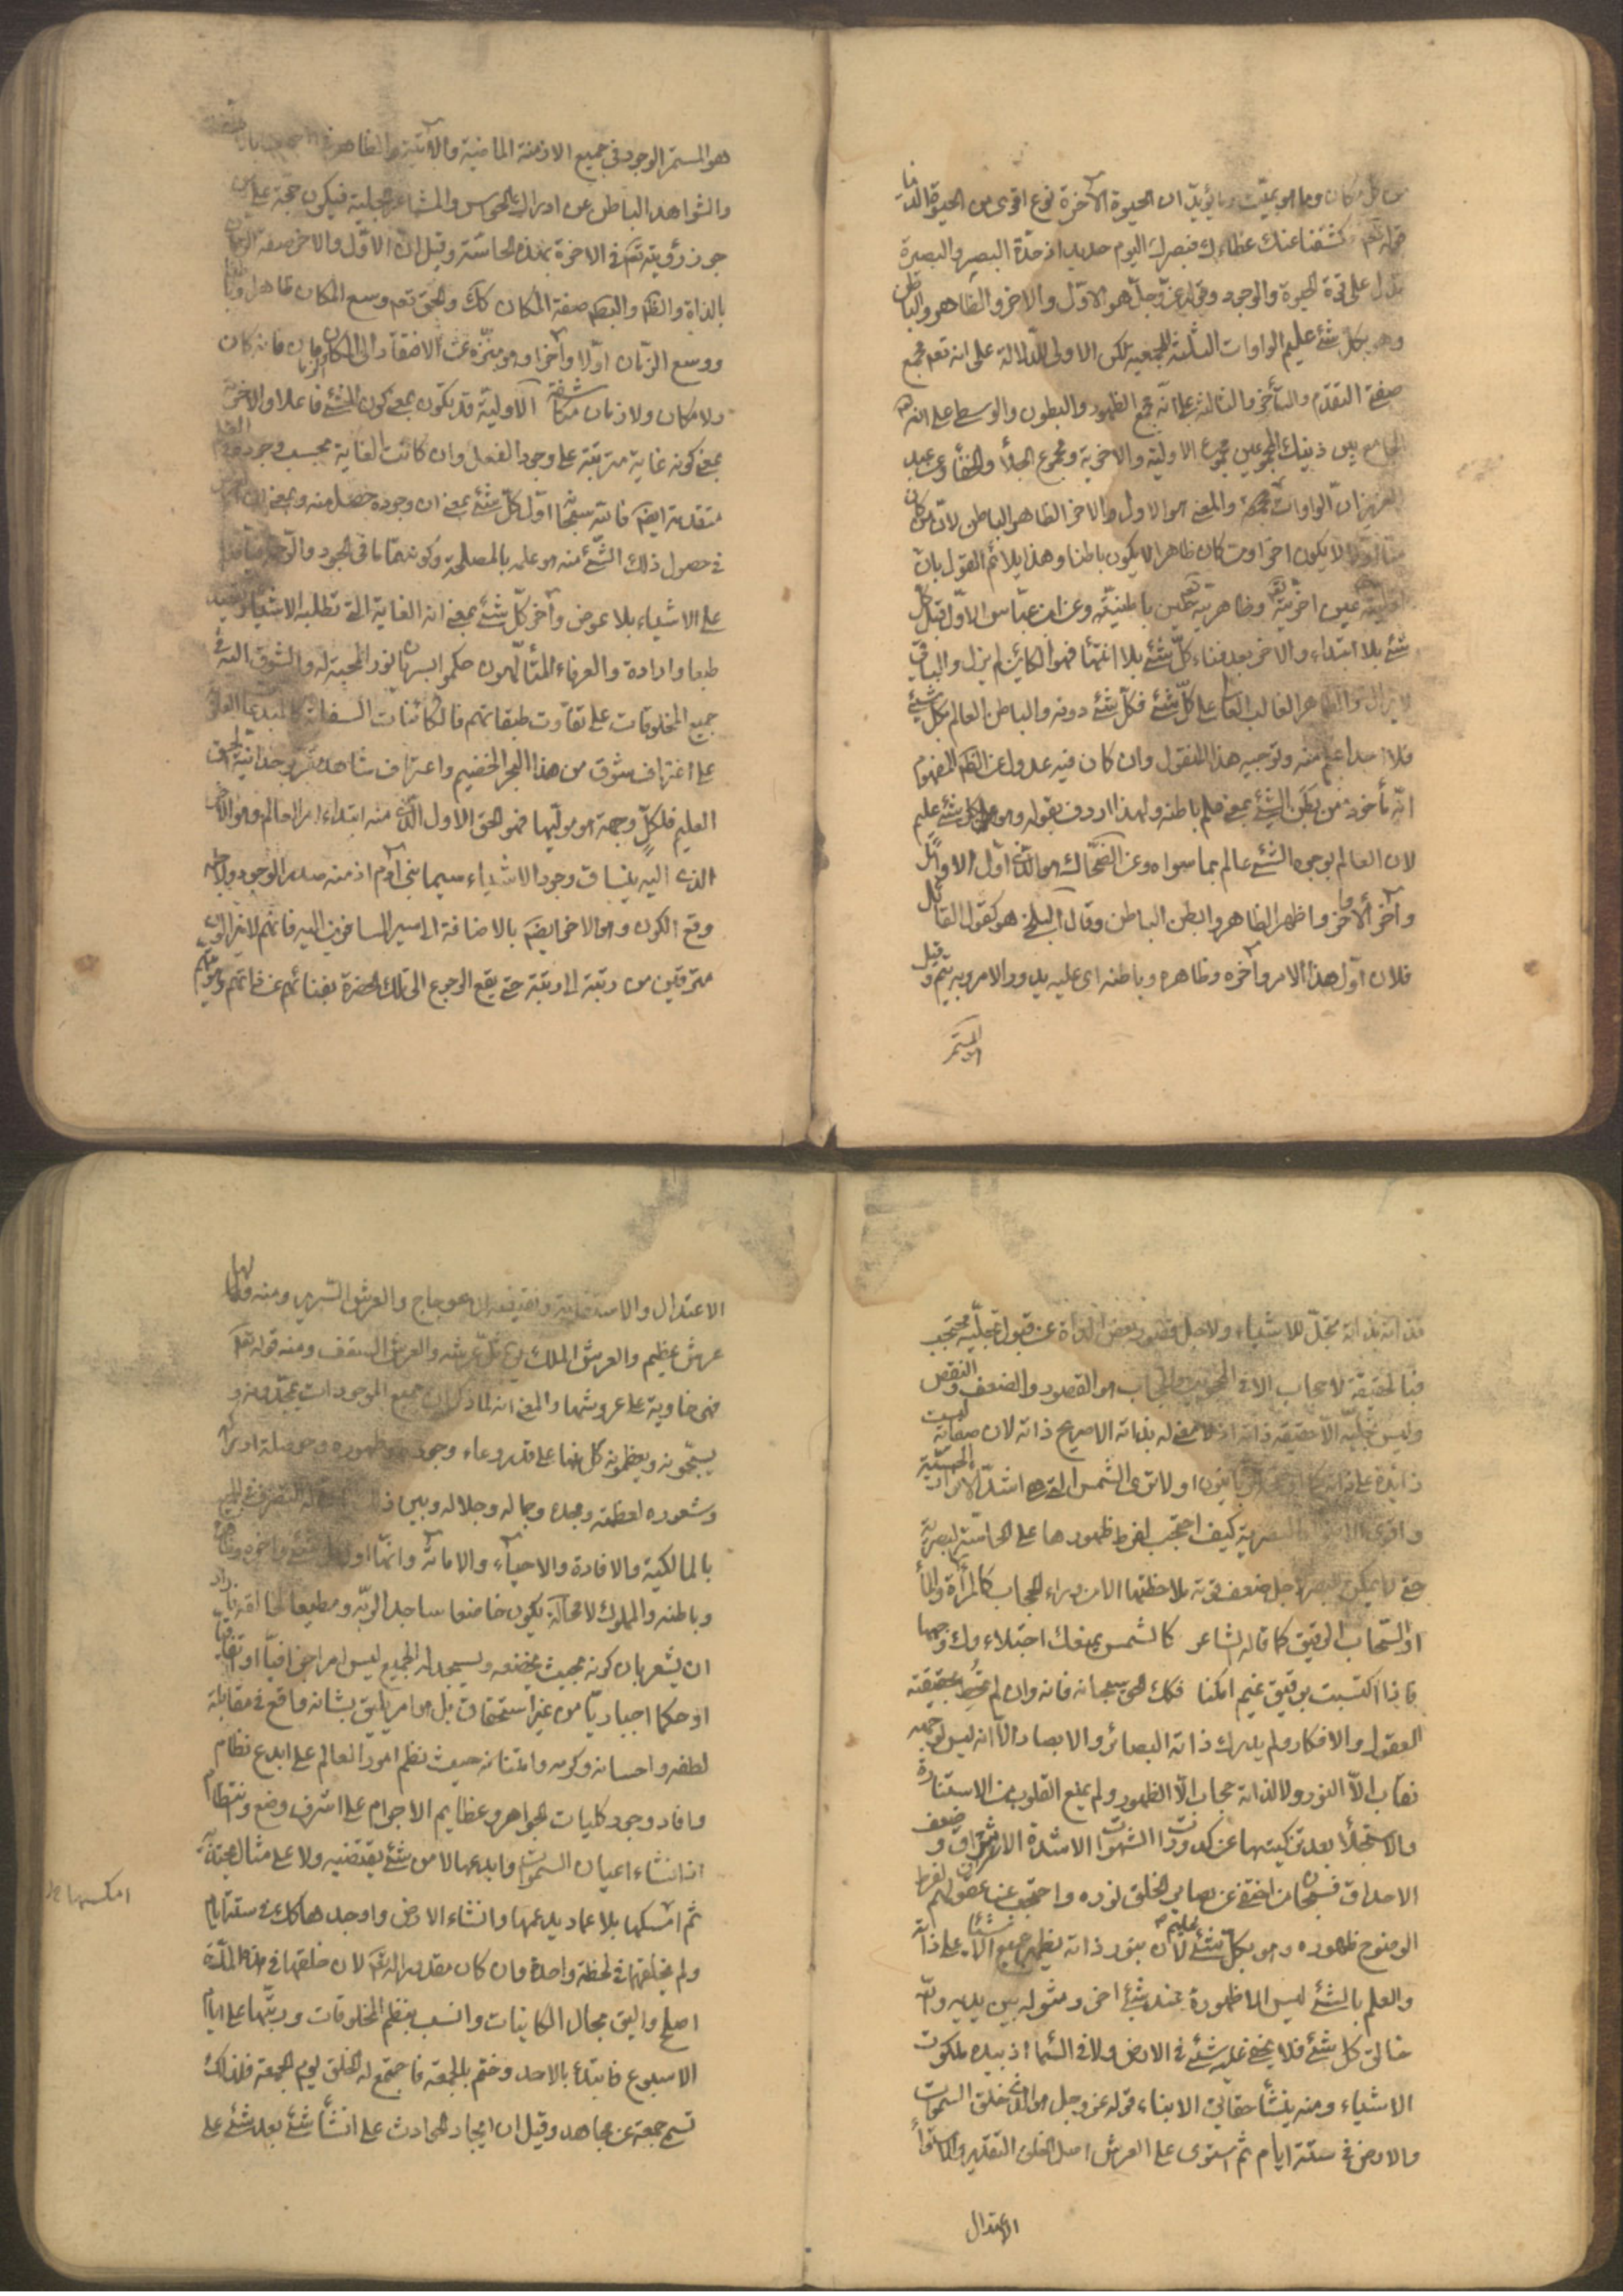 من كل مكان وما هو بميت ومما يؤيد ان الحيوة الآخرة نوع اقوى من الحيوة الدنيا
قوله تعم فكشفنا عنك غطاءك فبصرك اليوم حديد اذ حدّة البصر والبصيرة
تدل على قوة الحيوة والوجود وقوله عزّ وجلّ هو الاوّل والاخر والظاهر والباطن
وهو بكل شئ عليم الواوات الثلثة للجمعية لكن الاولى للدلالة على انه تعم مجمع
صفتى التقدّم والتأخر والثالثة على انّه مجمع الظهور والبطون والوسطى على انه
الجامع بين ذينك المجموعين مجموع الاولية والاخرية ومجموع الجلأ والخفأ وعن عبد
العزيز انّ الواوات مقحمة والمعنى هو الاول والاخر الظاهر الباطن لان من كان
منا اولا لا يكون اخرا ومن كان ظاهرا لا يكون باطنا وهذا يلائم القول بان
اوليته عين اخريته وظاهريته عين باطنيته وعن ابن عباس الاوّل قبل كلّ
شئ بلا ابتداء والآخر بعد فناء كلّ شئ بلا انتهأ فهو الكائن لم يزل والباقى
لا يزال والظاهر الغالب العالى على كلّ شئ فكلّ شئ دونه والباطن العالم بكل شئ
فلا احد اعلم منه وتوجيه هذا المنقول وان كان فيه عدولا عن الظم المفهوم
انّه مأخوذ من بطن الشئ بمعنى علم باطنه ولهذا اردف بقوله وهو بكل شئ عليم
لان العالم بوجوه الشئ عالم بما سواه وعن الضحّاك هو الذى اوّل الاوّل
وآخر الآخر واظهر الظاهر وابطن الباطن وقال البلخى هو كقول القائل
فلان اوّل هذا الامر وآخره وظاهره وباطنه اى عليه يدور الامر وبه يتم وقيل
هو المستمر
هو المستمر الوجود فى جميع الازمنة الماضية والآتية والظاهر
والشواهد الباطن عن ادراك الحواس والمشاعر الجلية فيكون حجة على من
جوز رؤيته تعم فى الاخرة بهذه الحاسّة وقيل انّ الاوّل والاخر صفة الزمان
بالذات والظم والبطم صفة المكان كك والحق تعم وسع المكان ظاهرا وباطنا
ووسع الزمان اوّلا وآخرا وهو منزّه عن الافتقار الى المكان والزمان فانه كان
ولا مكان ولا زمان مكاشفة الاولية قد تكون بمعنى كون الشئ فاعلا والاخرية
بمعنى كونه غاية مترتبة على وجود الفعل وان كانت الغاية بحسب وجوده
متقدمة ايضم فانه سبحانه اوّل كلّ شئ بمعنى ان وجوده حصل منه وبمعنى ان
فى حصول ذلك الشئ منه هو علمه بالمصلحة وكونه تماما فى الجود والرحمة
على الاشياء بلا عوض وآخر كلّ شئ بمعنى انه الغاية التى تطلبه الاشياء
طبعا وارادة والعرفاء المتألّهون حكموا بسريان نور المحبة له والشوق اليه فى
جميع المخلوقات على تفاوت طبقاتهم فالكائنات السفلية كالمبدعات العلوية
على اغتراف شوق من هذا البحر الخضيم واعتراف شاهد مقر بوحدانية الحق
العليم فلكلّ وجهة هو موليها فهو الحق الاول الذى منه ابتداء امر العالم وهو الآخر
الذى اليه ينساق وجود الاشياء سيما بنى آدم اذ منه صدر الوجود ولاجله
وقع الكون وهو الآخر ايضم بالاضافة الى سير المسافرين اليه فانهم لا يزالون
مترقين من رتبة الى رتبة حتى يقع الرجوع الى تلك الحضرة بفنائهم عن ذاتهم
قد انه بذاته متجلّ للاشياء ولاجل قصور بعض الذوات عن قبول تجلّيه محتجب
فبالحقيقة لا حجاب الا فى المحجوبين والحجاب هو القصور والضعف والنقص
وليس تجلّيه الا حقيقة ذاته اذ لا معنى له بذاته الا صريح ذاته لان صفاته ليست
زائدة على ذاته كما اوضحه الربانيون اولا ترى الشمس التى هى اشدّ الانوار الحسيّة
واقوى الاضواء البصرية كيف احتجب لفرط ظهورها على الحاسّة البصرية
حتى لا يمكن للبصر لاجل ضعف قوته ملاحظتها الا من وراء الحجاب كالمرآة والمأ
او السّحاب الرقيق كما قاله الشاعر كالشمس يمنعك اجتلاءك وجهها
فاذا اكتسبت برقيق غيم امكنا فكك الحق سبحانه فانه وان لم تحط بحقيقته
العقول والافكار ولم يدرك ذاته البصائر والابصار الاّ انه ليس لوجهه
نقاب الاّ النور ولا لذاته حجاب الاّ الظهور ولم يمنع القلوب من الاستنارة
والاستجلأ بعد تزكيتها عن كدورات الشهوات الا شدة الاشراق وضعف
الاحداق فسبحان من اختفى عن بصاير الخلق نوره واحتجب عن عقولهم لفرط
الوضوح ظهوره وهو بكلّ شئ عليم لان بنور ذاته يظهر جميع الاشياء على ذاته
والعلم بالشئ ليس الا ظهوره عند شئ اخر ومثوله بين يديه والله
خالق كل شئ فلا يخفى عليه شئ فى الارض ولا فى السّمأ اذ بيده ملكوت
الاشياء ومنه ينشأ حقائق الانباء قوله عز وجل هو الذى خلق السموات
والارض فى ستة ايام ثم استوى على العرش اصل الخلق التقدير والاستوأ
الاعتدال
الاعتدال والاستقامة ونقيضه الاعوجاج والعرش السّرير ومنه ولها
عرش عظيم والعرش الملك يق ثلّ عرشه والعرش السقف ومنه قوله تعم
فهى خاوية على عروشها والمعنى انه لما ذكر ان جميع الموجودات يمجّدونه و
يسبّحونه ويعظمونه كل منها على قدر وعاء وجوده وظهوره وحوصلة ادراكه
وشعوره لعظمته ومجده وجماله وجلاله وبين التصرف فى الجميع
بالمالكية والافادة والاحيآء والاماتة وانّها اوّل كل شئ وآخره وظاهره
وباطنه والمملوك لا محالة يكون خاضعا ساجدا لربّه ومطيعا لخالقه اراد
ان يشعر بان كونه بحيث يخضعه ويسجد له الجميع ليس امرا جزافيّا او اتفاقيا
او حكما اجباريّا من غير استحقاق بل هو امر يليق بشانه واقع فى مقابلة
لطفه واحسانه وكرمه وامتنانه حيث نظم امور العالم على ابدع نظام
وافاد وجود كليات الجواهر وعظايم الاجرام على اشرف وضع وانتظام
اذ انشاء اعيان السموات وابدعها لا من شئ يقتضيه ولا على مثال يحتذيه
ثم امسكها بلا عماد يدعمها وانشاء الارض واوجدها كك فى ستة ايام
ولم يخلقها فى لحظة واحدة وان كان مقدورا له تعم لان خلقها فى هذه المدّة
اصلح واليق بحال الكاينات وانسب بنظم المخلوقات ورتّبها على ايام
الاسبوع فابتدأ بالاحد وختم بالجمعة فاجتمع له الخلق يوم الجمعة فلذلك
تسمى جمعة عن مجاهد وقيل ان ايجاد الحوادث على انشأ شئ بعد شئ على
امسكها